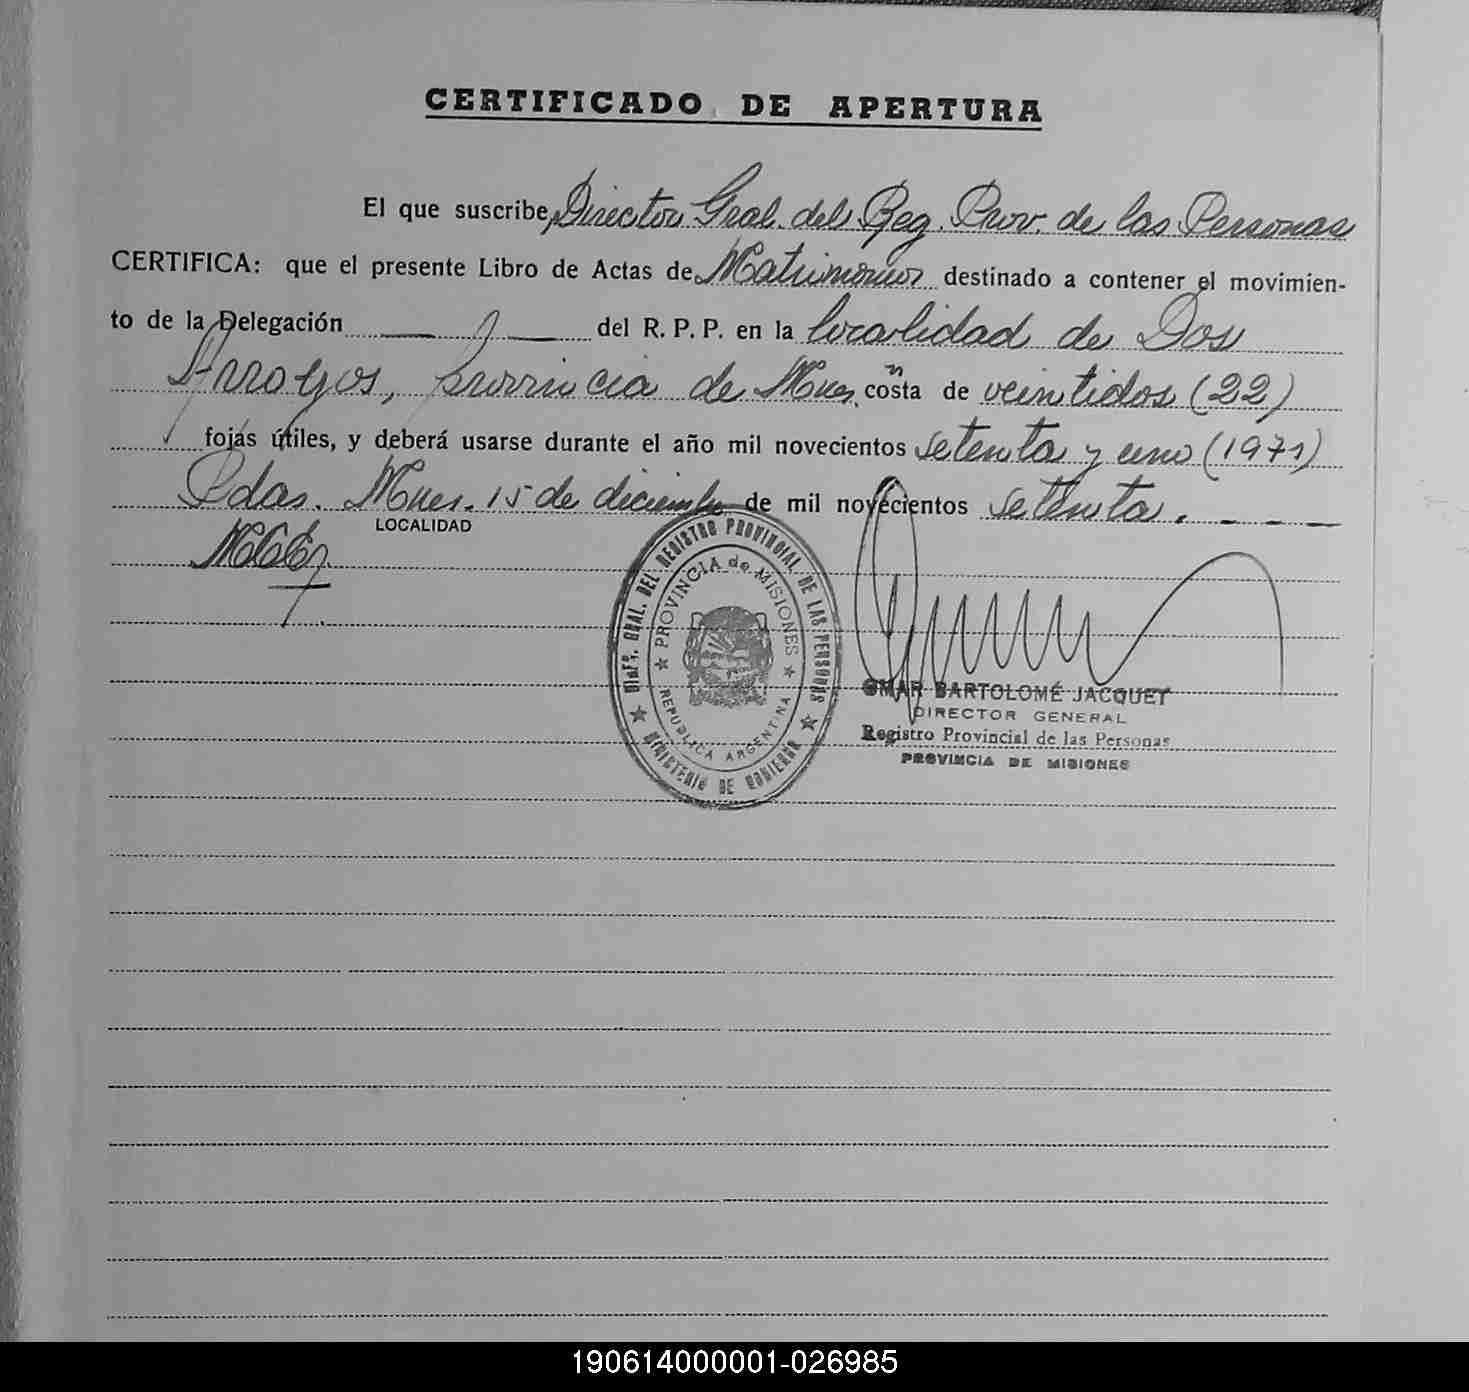 CERTIFICADO DE APERTURA
El que suscribe, Director Gral. del Reg. Prov. de las Personas
CERTIFICA: que el presente Libro de Actas de Matrimonios destinado a contener el movimien-
to de la Delegación del R. P. P. en la localidad de Dos
Arroyos, provincia de Mnes. consta de veintidos (22)
fojas útiles, y deberá usarse durante el año mil novecientos setenta y uno (1971)
Pdas. Mnes. 15 de diciembre de mil novecientos setenta. - - -
LOCALIDAD
DIREC. GRAL. DEL REGISTRO PROVINCIAL DE LAS PERSONAS
PROVINCIA de MISIONES
REPUBLICA ARGENTINA
MINISTERIO DE GOBIERNO
OMAR BARTOLOMÉ JACQUET
DIRECTOR GENERAL
Registro Provincial de las Personas
PROVINCIA DE MISIONES
190614000001-026985